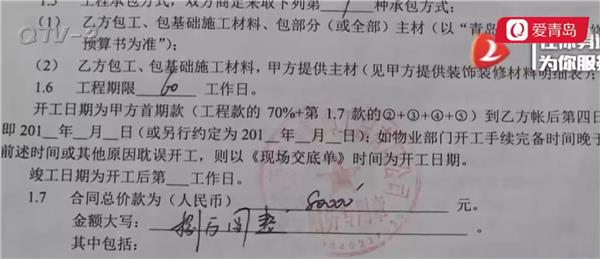 QTV-2
爱青岛
为你服
1.5 工程承包方式，双方商定采取下列第 1 种承包方式：
（1） 乙方包工、包基础施工材料、包部分（或全部）主材（以“青岛
预算书为准”）；
（2） 乙方包工、包基础施工材料，甲方提供主材（见甲方提供装饰装修材料明细表
1.6 工程期限 60 工作日。
开工日期为甲方首期款（工程款的 70%+第 1.7 款的②+③+④+⑤）到乙方帐后第四日
即 201__年__月__日（或另行约定为 201__年__月__日）；如物业部门开工手续完备时间晚于
前述时间或其他原因耽误开工，则以《现场交底单》时间为开工日期。
竣工日期为开工后第___工作日。
1.7 合同总价款为（人民币） 元。
金额大写： 。
其中包括：